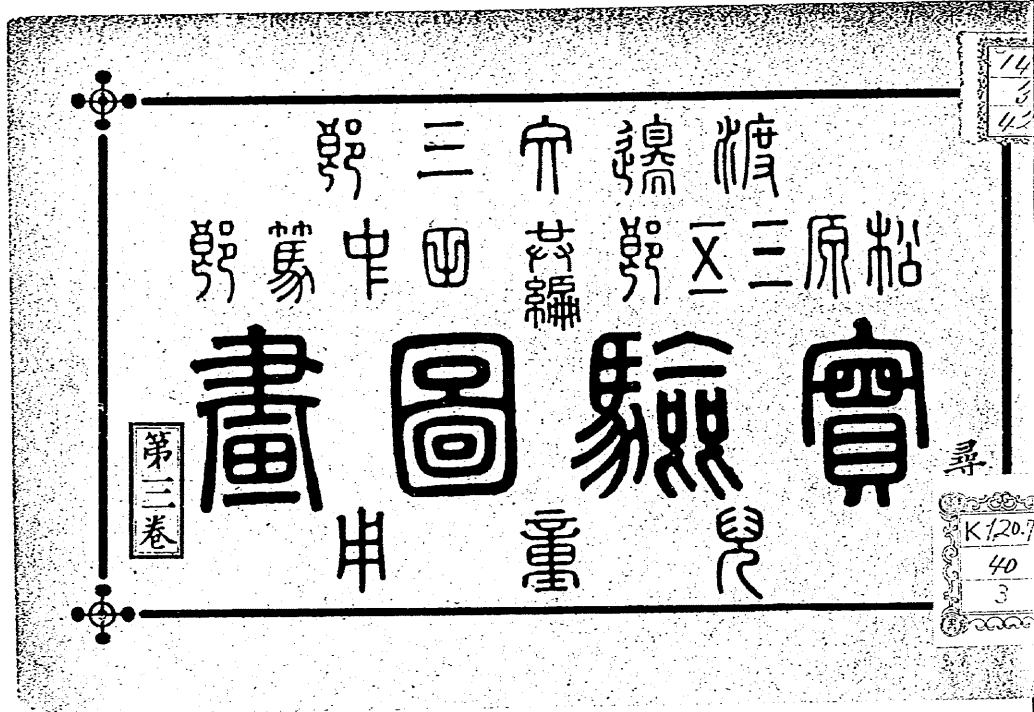 渡邊文三郎
松原三五郎 共編 田中篤郎
實驗圖畫
兒童用
第三卷
尋
K120.7
40
3